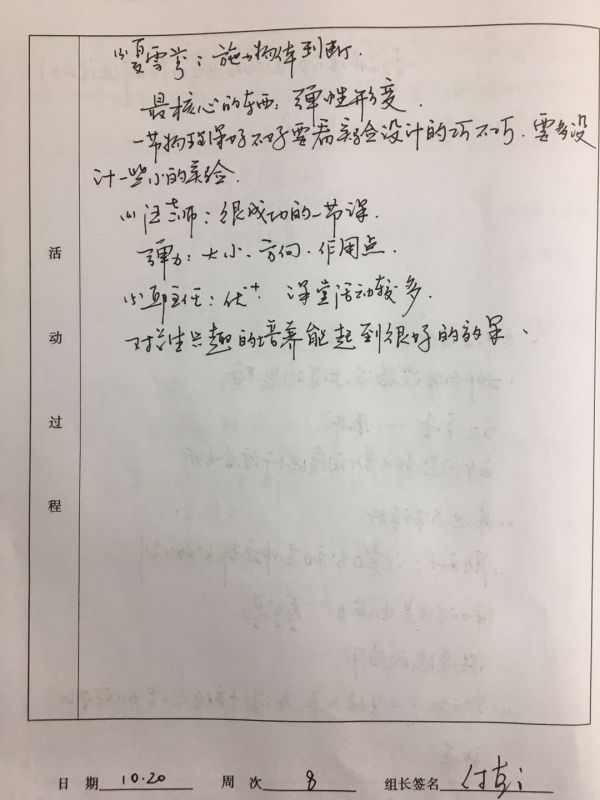 夏雲芳：施力物体判断.
最核心的东西：弹性形变.
一节物理课好不好要看实验设计的巧不巧.要多设
计一些小的实验.
汪老师：很成功的一节课.
弹力：大小.方向.作用点.
主任：优+ 课堂活动较多.
对学生兴趣的培养能起到很好的效果.
活
动
过
程
日 期 10.20 周 次 8 组长签名